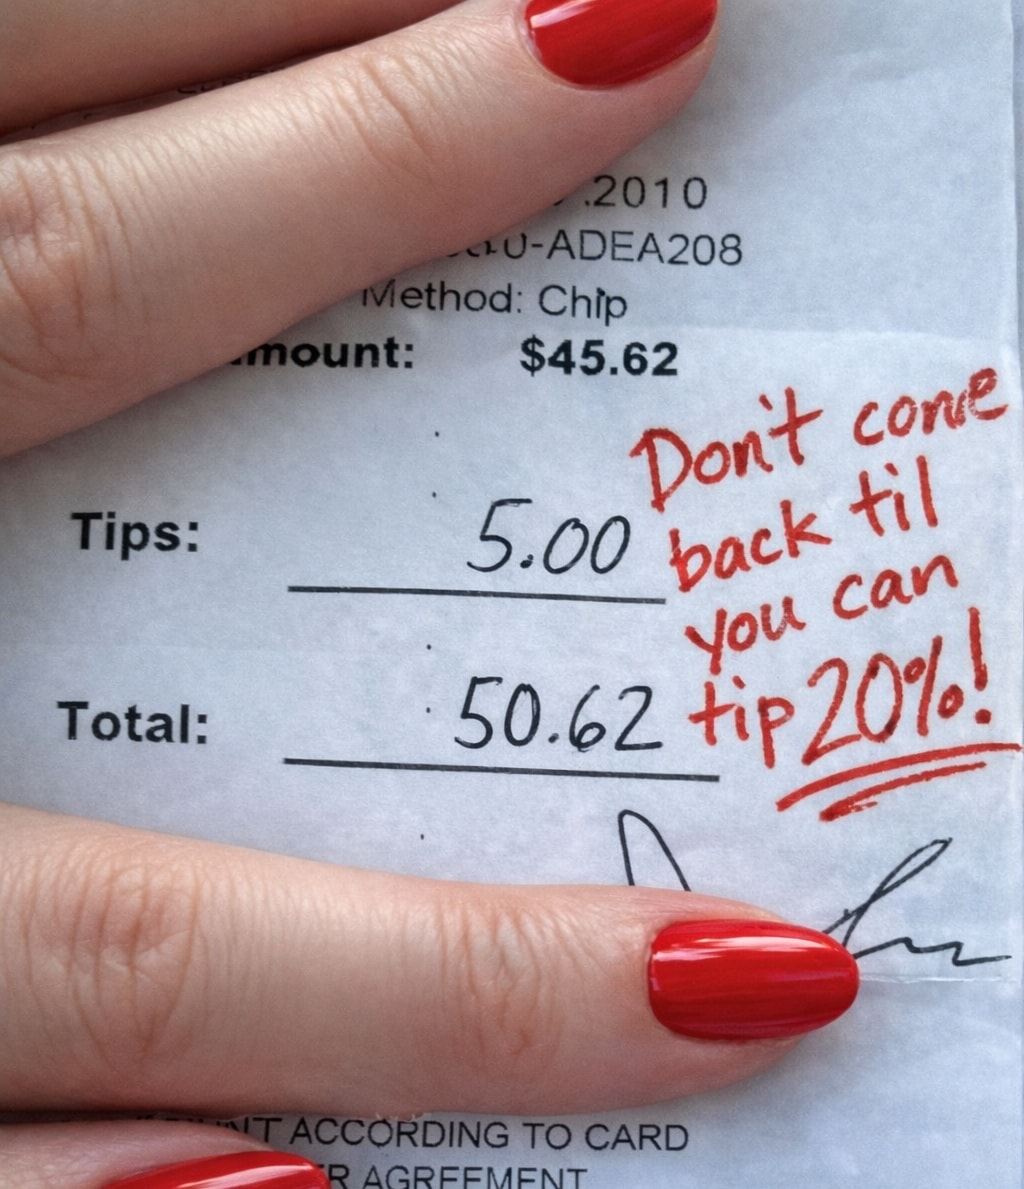 .2010
0-ADEA208
Method: Chip
mount: $45.62
Don't come
back til
Tips: 5.00
you can
tip 20%!
Total: 50.62
ACCORDING TO CARD
AGREEMENT